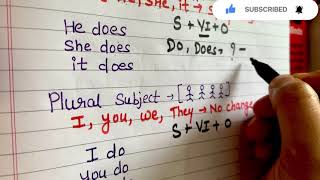 SUBSCRIBE
he, she, it → s
He does
She does
it does
S + V1 + O
Do, Does, ? -
Plural Subject →
I, you, we, They → No change
S + V1 + O
I do
you do